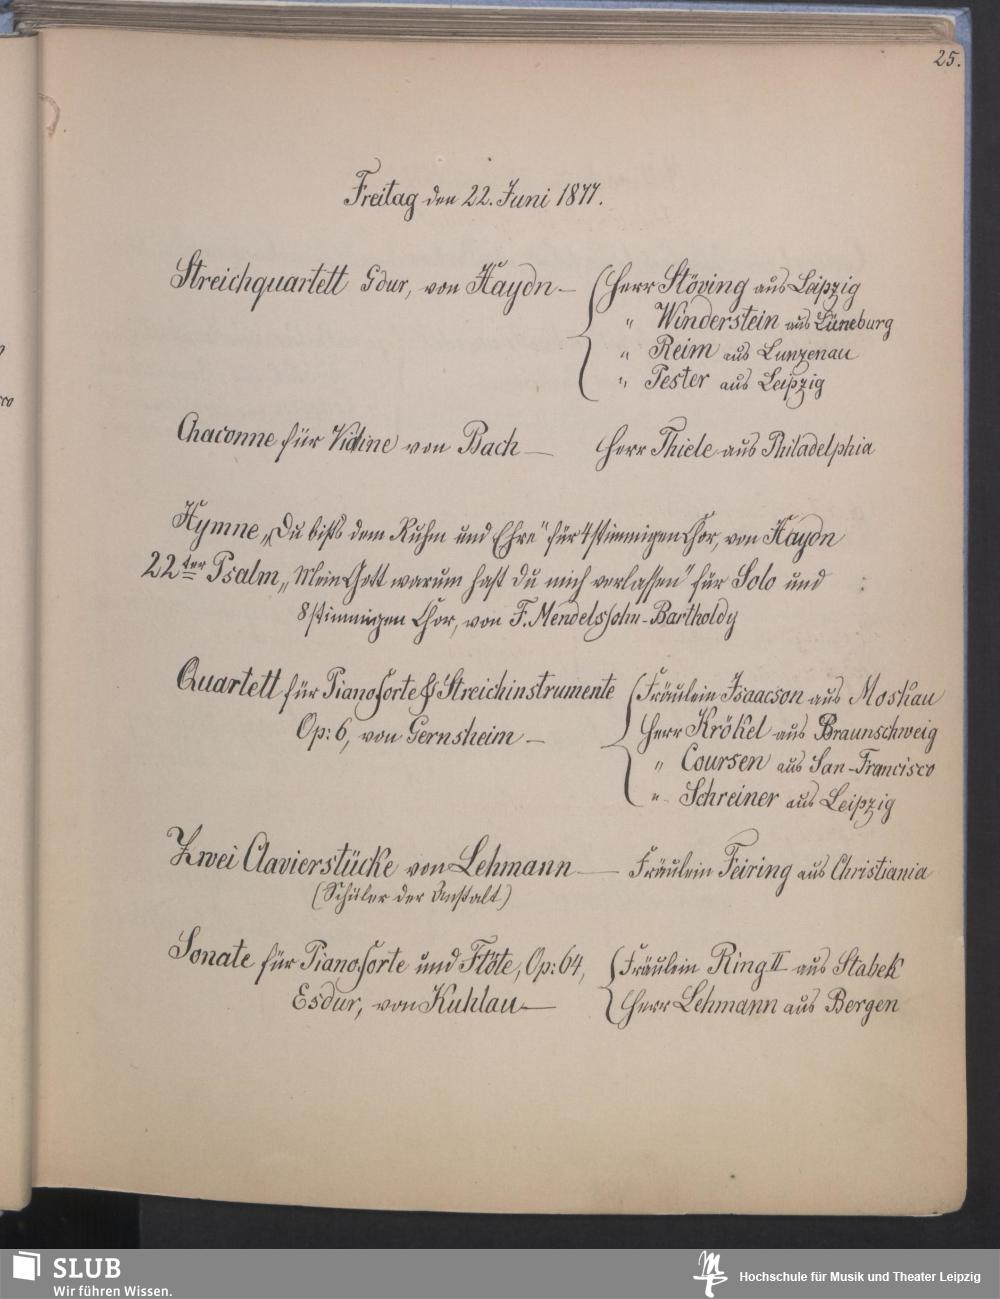 25.
Freitag den 22. Juni 1877.
Streichquartett Gdur, von Haydn — Herr Stöving aus Leipzig
" Winderstein aus Lüneburg
" Reim aus Lunzenau
" Pester aus Leipzig
Chaconne für Violine von Bach — Herr Thiele aus Philadelphia
Hymne „Du bists dem Ruhm und Ehre" für 4stimmigen Chor, von Haydn
22ter Psalm „Mein Gott warum hast du mich verlassen" für Solo und
8stimmigen Chor, von F. Mendelssohn-Bartholdy
Quartett für Pianoforte & Streichinstrumente Fräulein Isaacson aus Moskau
Op: 6, von Gernsheim — Herr Krökel aus Braunschweig
" Coursen aus San-Francisco
" Schreiner aus Leipzig
Zwei Clavierstücke von Lehmann — Fräulein Feiring aus Christiania
(Schüler der Anstalt)
Sonate für Pianoforte und Flöte, Op: 64, Fräulein Ring II aus Stabek
Esdur, von Kuhlau — Herr Lehmann aus Bergen
SLUB
Wir führen Wissen.
Hochschule für Musik und Theater Leipzig